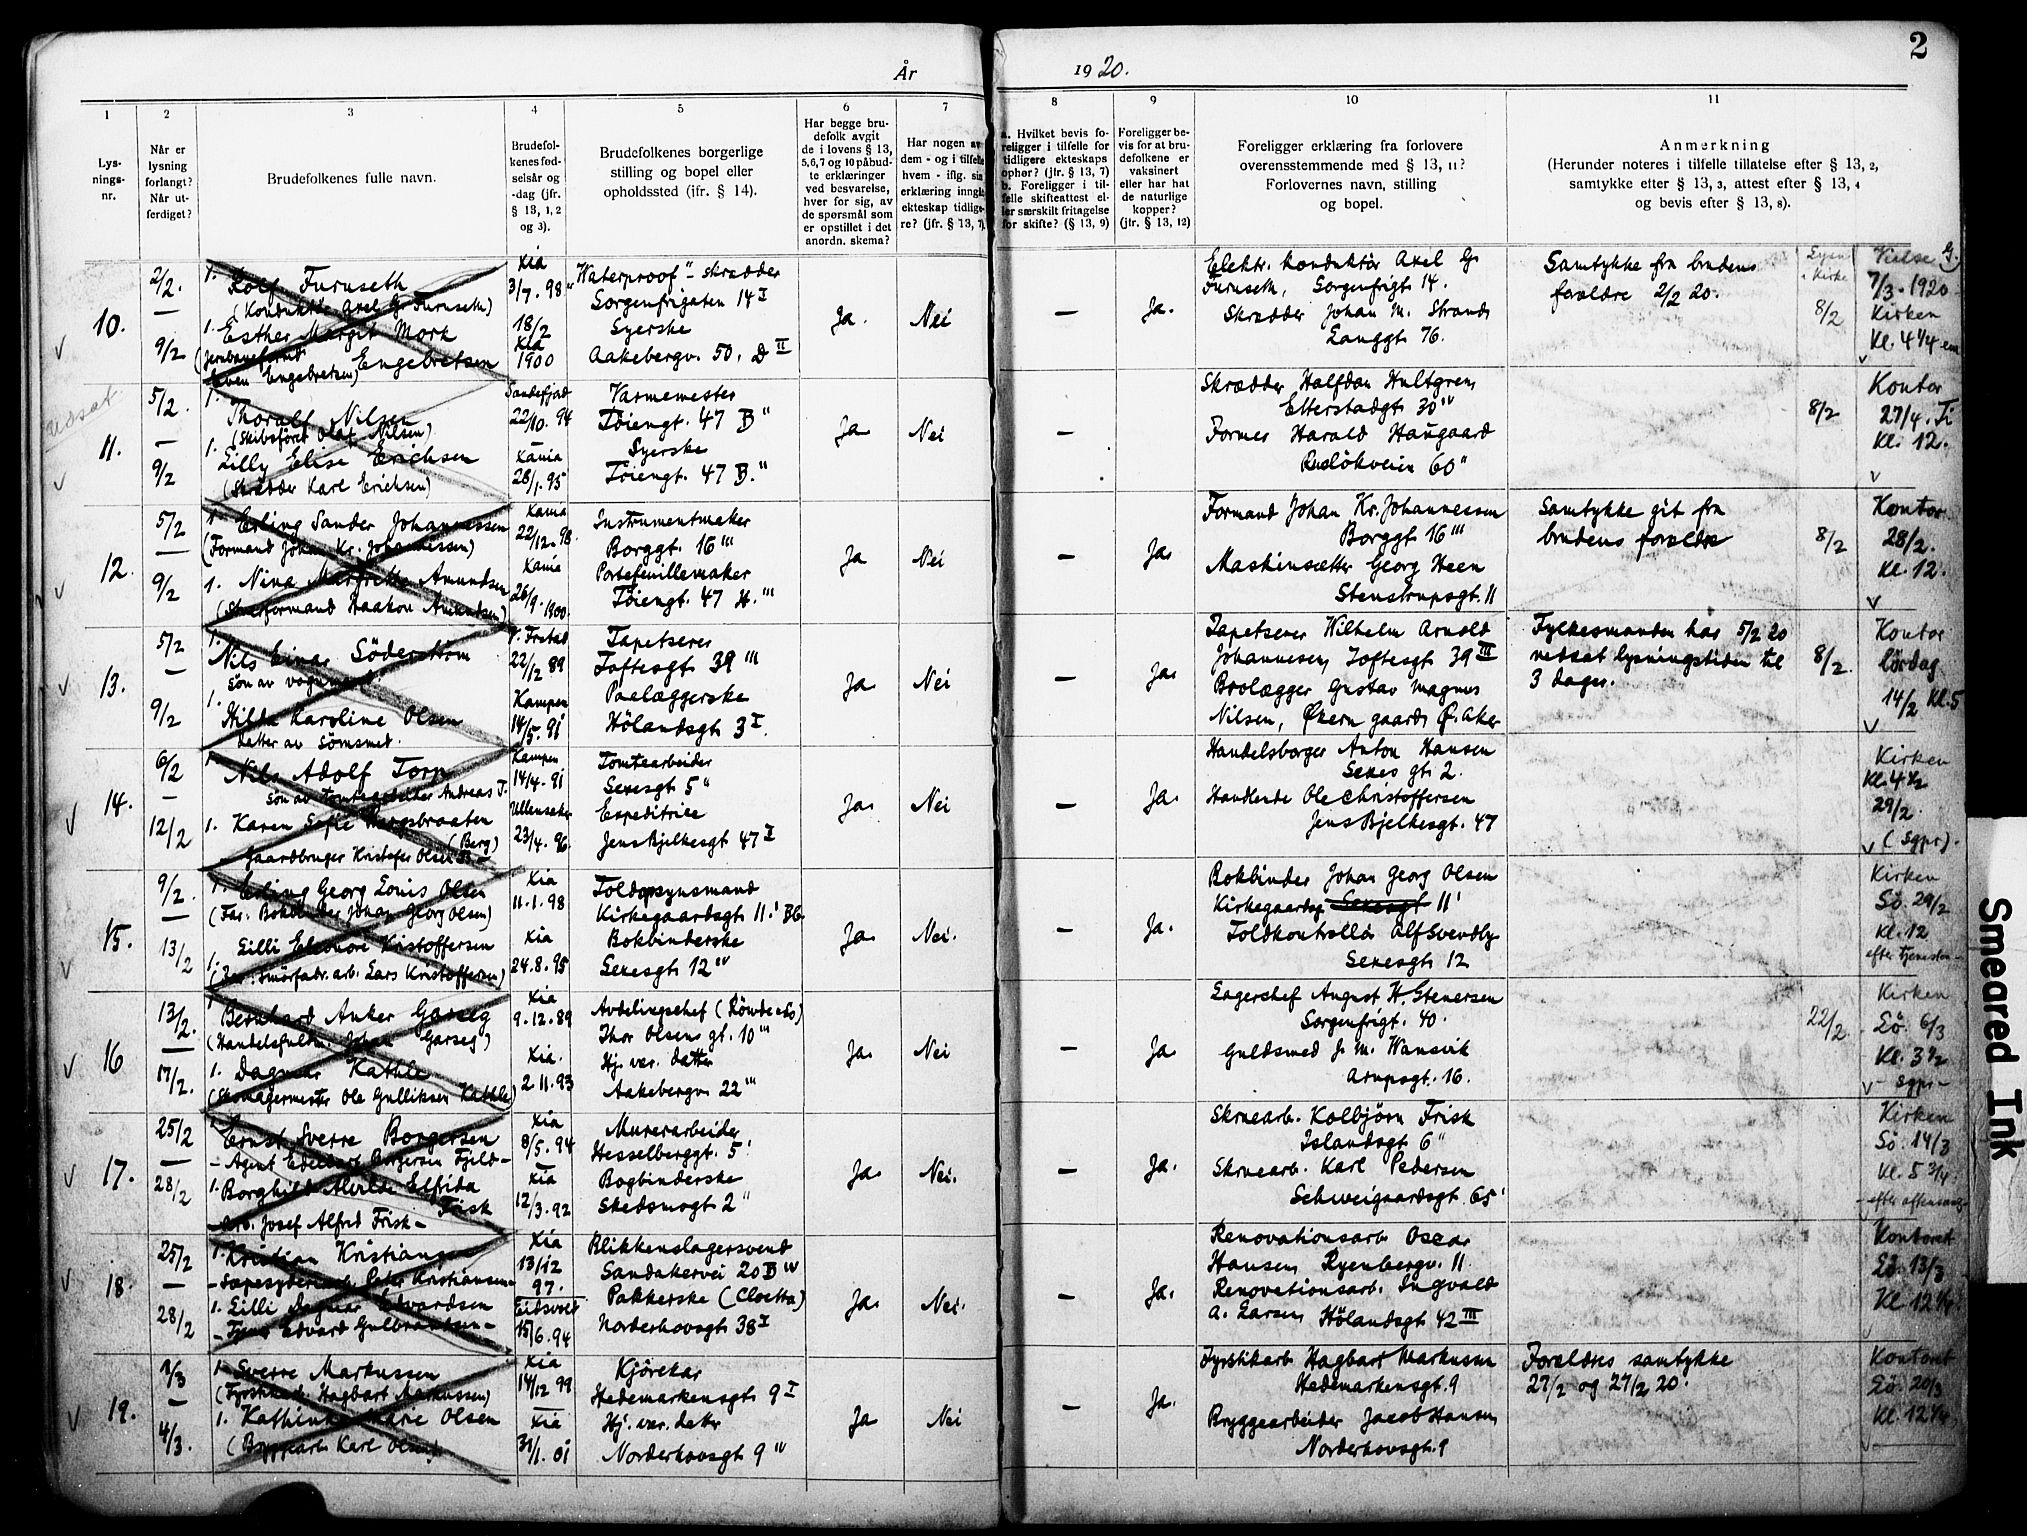 2
År 1920.
1 2 3 4 5 6 7 8 9 10 11
Lys-
nings-
nr.
Når er
lysning
forlangt?
Når ut-
ferdiget?
Brudefolkenes fulle navn.
Brudefol-
kenes fød-
selsår og
-dag (jfr.
§ 13, 1, 2
og 3).
Brudefolkenes borgerlige
stilling og bopel eller
opholdssted (ifr. § 14).
Har begge bru-
defolk avgit
de i lovens § 13,
5,6,7 og 10 påbud-
te erklæringer
ved besvarelse,
hver for sig, av
de spørsmål som
er opstillet i det
anordn. skema?
Har nogen av
dem - og i tilfelle
hvem - iflg. sin
erklæring inngått
ekteskap tidlige-
re? (jfr. § 13, 7)
a. Hvilket bevis fo-
religger i tilfelle for
tidligere ekteskaps
ophør? (jfr. § 13, 7)
b. Foreligger i til-
felle skifteattest el-
ler særskilt fritagelse
for skifte? (§ 13, 9)
Foreligger be-
vis for at bru-
defolkene er
vaksinert
eller har hat
de naturlige
kopper?
(jfr. § 13, 12)
Foreligger erklæring fra forlovere
overensstemmende med § 13, 11?
Forlovernes navn, stilling
og bopel.
Anmerkning
(Herunder noteres i tilfelle tillatelse efter § 13, 2,
samtykke efter § 13, 3, attest efter § 13, 4
og bevis efter § 13, 8).
10.
2/2.
—
9/2
1. Rolf Furuseth
(Konduktör Axel G. Furuseth)
1. Esther Margit Mork
Engebretsen
(Jernbaneformd
Even Engebretsen)
Kia
3/7. 98
18/2
Kia
1900
"Waterproof"-skrædder
Sorgenfrigaten 14 I
Syerske
Aakebergv. 50. D II
Ja.
Nei
—
Ja.
Elektr. konduktör Axel G.
Furuseth, Sorgenfrigt 14.
Skrædder Johan M. Strand,
Langgt 76.
Samtykke fra brudens
forældre 2/2 20.
Lysn
i Kirke
8/2
Vielse
7/3 - 1920
Kirken
Kl. 4 1/4 em
11.
5/2.
—
9/2
1. Thoralf Nilsen
(Skibsförer Olaf Nilsen)
1. Lilly Elise Erichsen
(Skrædder Karl Erichsen)
Sandefjord
22/10. 94
Kania
28/1. 95
Varmemester
Töiengt. 47 B "
Syerske
Töiengt. 47 B. "
Ja
Nei
—
Skrædder Halfdan Hultgren,
Etterstadgt 30 IV
Former Harald Haugaard
Ruslökveien 60 "
8/2
Kontor
27/4. Ti
Kl. 12.
12.
5/2
—
9/2
1. Erling Sander Johannessen
(Formand Johan Kr. Johannessen)
1. Nina Margrethe Amundsen
Haakon Amundsen)
Kania
22/12. 98.
Kania
26/9. 1900.
Instrumentmaker
Borggt. 16 '''
Portefeuillemaker
Töiengt. 47 H. '''
Ja
Nei
—
Ja.
Formand Johan Kr. Johannessen
Borggt 16 '''
Maskinsætter Georg Heen
Stenstrupsgt. 11
Samtykke git fra
brudens forældre
8/2
Kontor.
28/2.
Kl. 12.
13.
5/2
—
9/2
1. Nils Einar Söderström
Sön av
1. Hilda Karoline Olsen
Datter av Sömsmed.
22/12 89
Kampen
14/5. 91
Tapetserer
Toftesgt 39 '''
Pælæggerske
Hölandsgt 3 I.
Ja
Nei
—
Ja.
Tapetserer Wilhelm Arnold
Johannesen, Toftesgt 39 III
Brolægger Gustav Magnus
Nilsen, Økern gaard, Ø. Aker
Fylkesmanden har 5/2 20
nedsat lysningstiden til
3 dager.
8/2.
Kontor
lördag
14/2 Kl. 5
14.
6/2
—
12/2
1. Nils Adolf Torp
Sön av tomtearbeider Andreas T.
1. Karen Sofie
(Berg)
Gaardbruger Kristofer Olsen B-
Kampen
14/4. 91
Ullensaker
23/4. 96
Tomtearbeider
Sexesgt 5 "
Expeditrice
Jens Bjelkesgt 47 I
Ja.
Nei
—
Ja.
Handelsborger Anton Hansen
Sexes gt 2.
Handlende Ole Christoffersen
Jens Bjelkesgt. 47
Kirken
Kl. 4 1/2
29/2.
(Sgpr).
15.
9/2.
—
13/2
1. Erling Georg Louis Olsen
(Far: Bokbinder Johan Georg Olsen)
1. Lilli Eleonore Kristoffersen
(Far: Smörfabr. arb. Lars Kristoffersen)
Kia
11. 1. 98
Kia
24. 8. 95
Toldopsynsmand
Kirkegaardsgt 11. ' Bb.
Bokbinderske
Sexesgt 12 IV
Ja.
Nei.
—
Ja.
Bokbinder Johan Georg Olsen
Kirkegaardsg Sexesgt 11 '
Toldkontrollör Alf Svendby
Sexesgt 12
Kirken
Sö. 29/2
Kl. 12
efter tjenesten
16
13/2.
—
17/2.
1. Bernhard Anker Garseg
(Handelsfuldm. Johan Garseg)
1. Dagmar Kathle
(Skomagermester Ole Gulliksen Kathle)
Kia
9. 12. 89
Kia.
2 11. 93
Avdelingschef
Thor Olsens gt. 10 '''
Hj. vær. datter
Aakebergv 22 '''
Ja.
Nei
—
Ja
Lagerchef August H. Stenersen
Sorgenfrigt. 40.
Guldsmed J. M. Wansvik
Arupsgt. 16.
22/2.
Kirken
Sö. 6/3
Kl. 3 1/2
- Sgpr -
17.
25/2
—
28/2
1. Ernst Sverre Borgersen
- Agent Edelbart Borgersen Fjeld -
1. Borghild Alvilde Elfrida
Frisk
- Arb. Josef Alfred Frisk -
Kia
8/5. 94
Kia
12/3. 92
Murerarbeider
Hesselberggt. 5 '
Bogbinderske
Skedsmogt 2 "
Ja.
Nei.
—
Ja.
Skruearb. Kolbjörn Frisk
Islandsgt 6 "
Skruearb. Karl Pedersen
Schweigaardsgt 65 '
Kirken
Sö. 14/3
Kl. 5 3/4
- efter aftensang -
18.
25/2
—
28/2
1. Kristian Kristiansen
- Sæpesyderiarb. Peter Kristiansen -
1. Lilli Dagmar Edvardsen
- Edvard Gulbrandsen -
Kia
13/12
97.
Eidsvold
15/6. 94
Blikkenslagersvend
Sandakervei 20 B IV
Pakkerske (Cloetta)
Norderhovsgt 38 I
Ja.
Nei.
—
Ja.
Renovationsarb Oscar
Hansen Ryenbergv. 11.
Renovationsarb. Ingvald
A. Larsen Hölandsgt 42 III
Kontoret
Lö. 13/3
Kl 12 1/4
19.
1/3
—
4/3.
1. Sverre Markussen
(Fyrstikarb. Hagbart Markussen)
1. Kathinka Marie Olsen
(Bryggearb. Karl Olsen)
Kia
14/12 99
Kia
31/1. 01
Kjörekar
Hedemarkensgt 9 I
Hj. vær. datter
Norderhovsgt 9 IV
Ja
Nei
—
Ja.
Fyrstikarb Hagbart Markussen
Hedemarkensgt. 9
Bryggearbeider Jacob Hansen
Norderhovsgt. 9
Forældres samtykke
27/2 og 27/2 20.
Kontoret
Lö. 20/3
Kl. 12 1/4
Smeared Ink